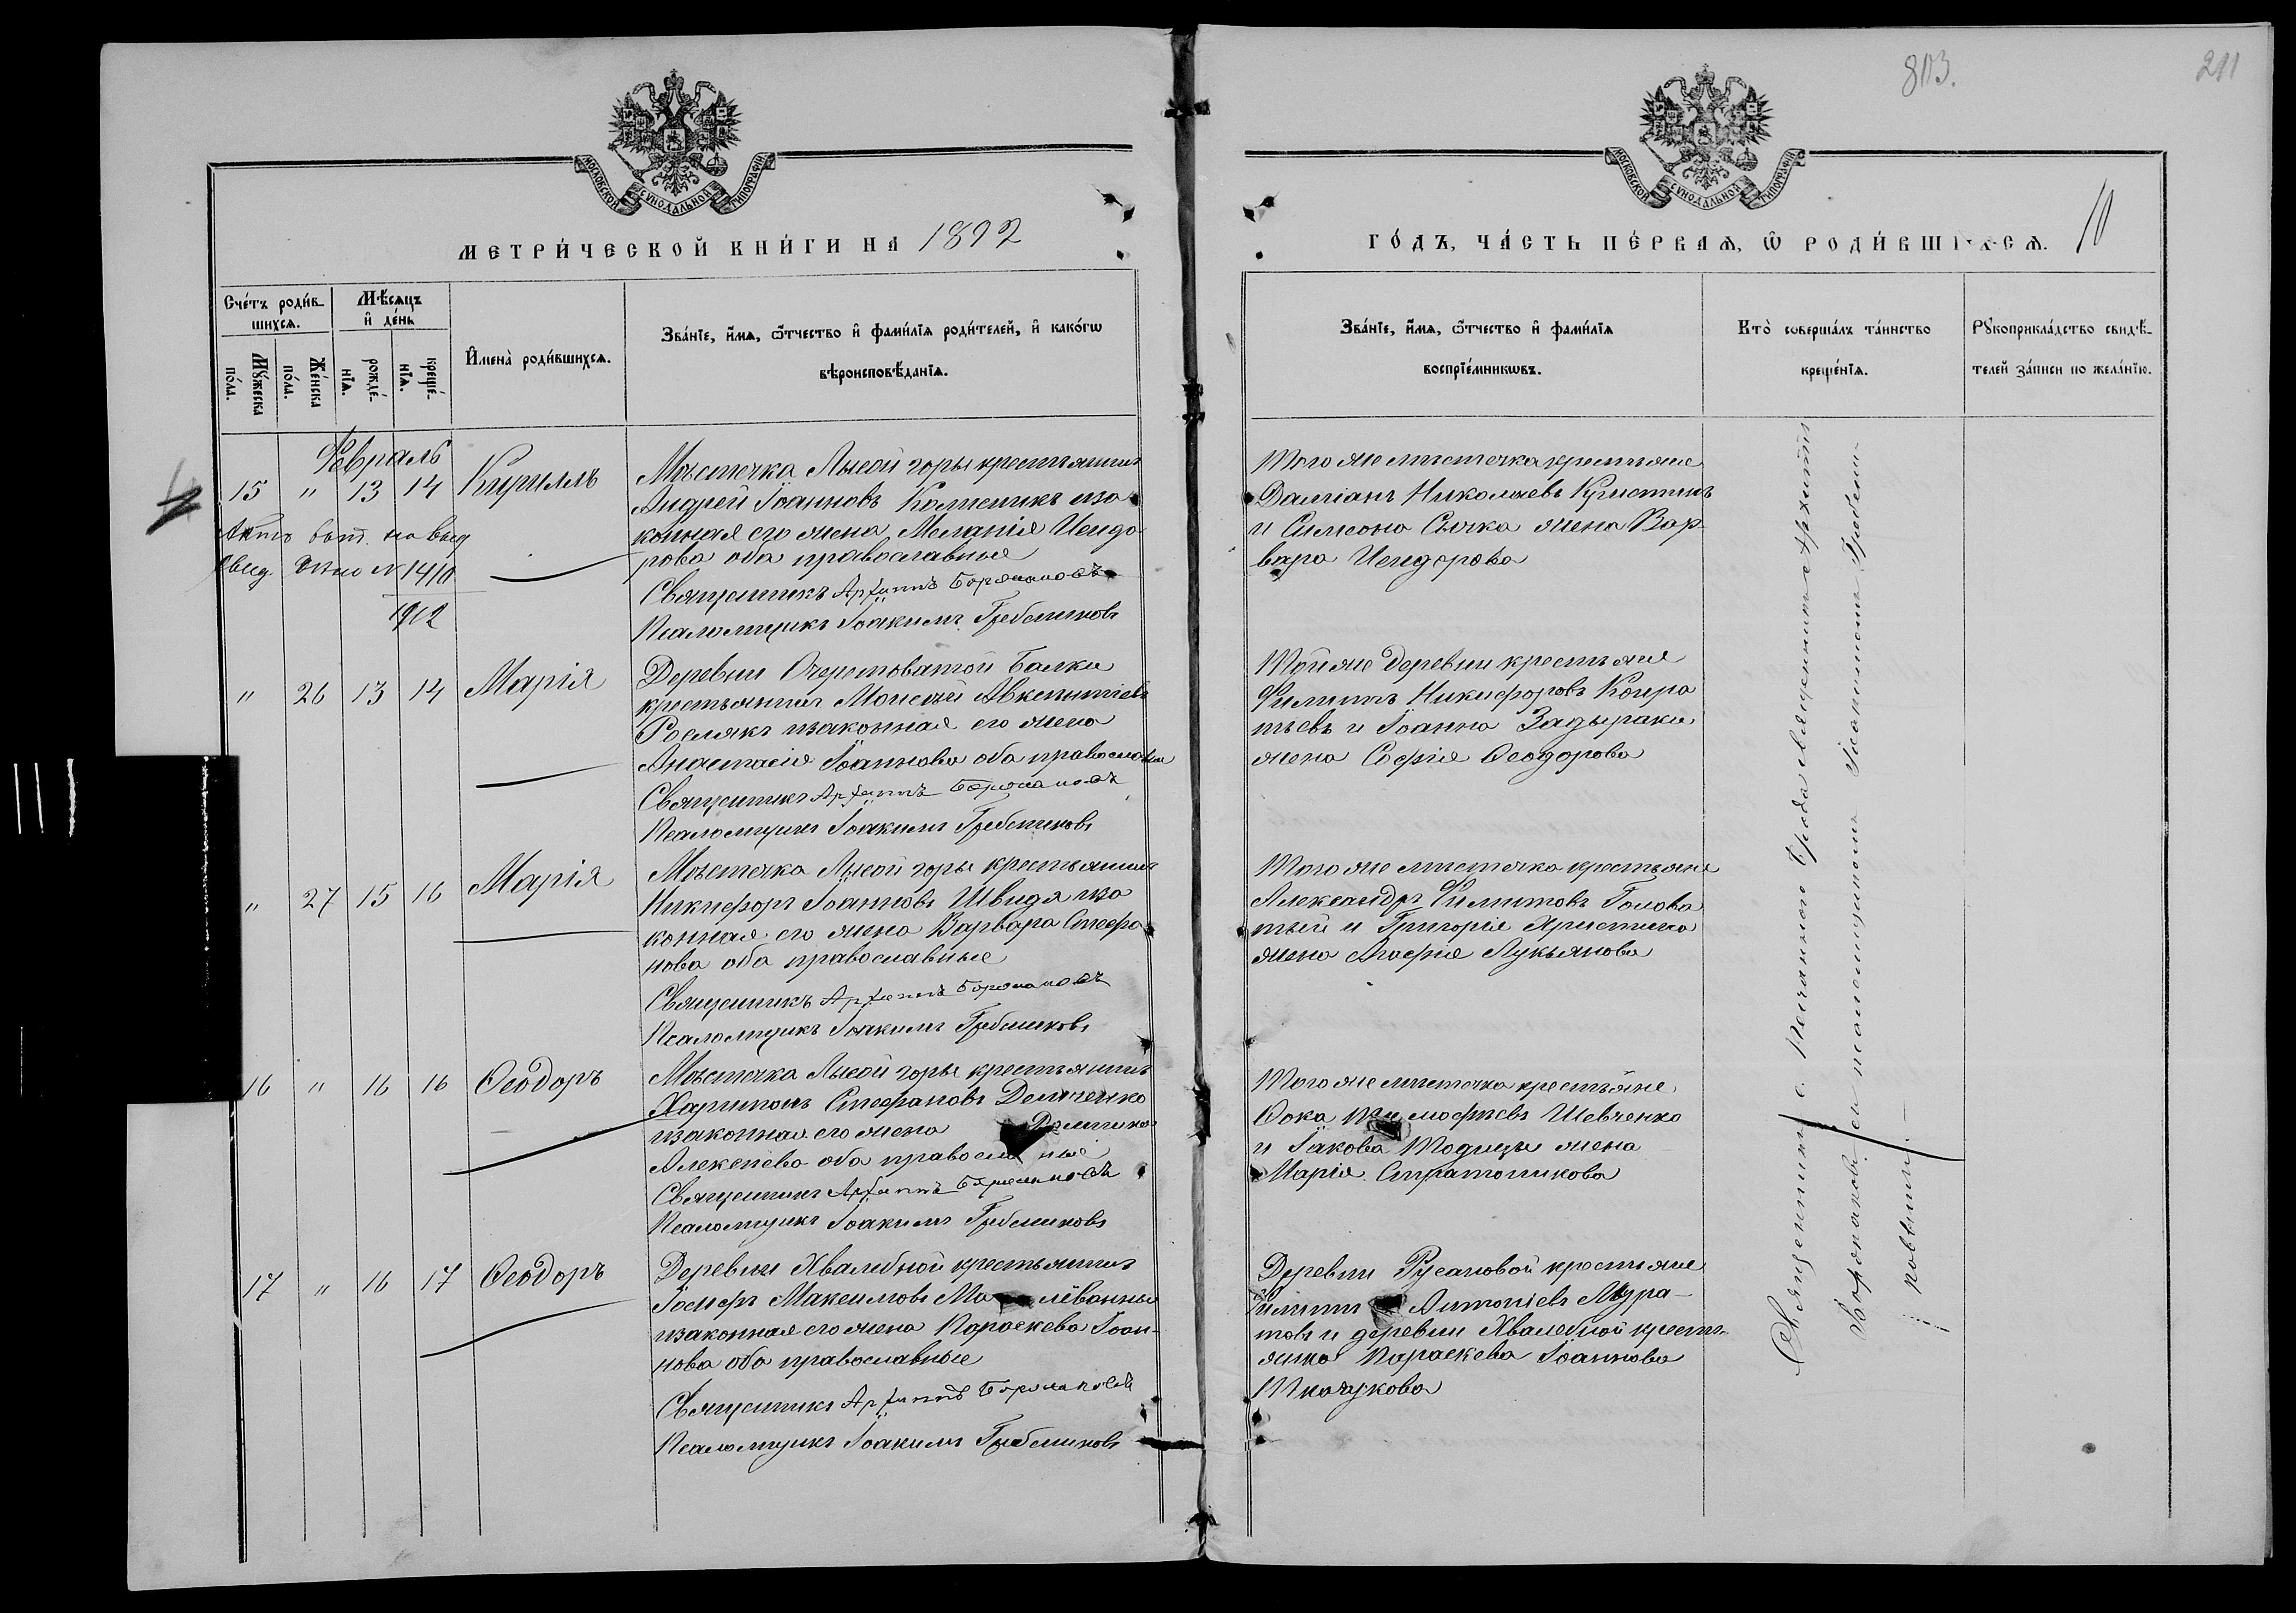 803.
211
МОСКОВСКОЙ СѴНОДАЛЬНОЙ ТИПОГРАФІИ
МОСКОВСКОЙ СѴНОДАЛЬНОЙ ТИПОГРАФІИ
МЕТРИ́ЧЕСКОЙ КНИ́ГИ НА 1892
ГО́ДЪ, ЧА́СТЬ ПЕ́РВАѦ, Ѿ РОДИ́ВШИХСѦ. 10
Сче́тъ роди́в-
шихсѧ.
Мꙋ́жеска по́ла.
Же́нска по́ла.
Мѣ́сѧцъ и҆ де́нь
рожде́-нїѧ.
креще́-нїѧ.
И҆мена̀ роди́вшихсѧ.
Зва́нїе, и҆́мѧ, ѻ҆́тчество и҆ фами́лїѧ роди́телей, и҆ како́гѡ
вѣроисповѣ́данїѧ.
Зва́нїе, и҆́мѧ, ѻ҆́тчество и҆ фами́лїѧ
воспрїе́мникѡвъ.
Кто̀ соверша́лъ та́инство
креще́нїѧ.
Рꙋкоприкла́дство свидѣ́-
телей за́писи по жела́нїю.
Февраль
15 " 13 14 Кириллъ
Мѣстечка Лысой горы крестьянинъ
Андрей Іоанновъ Колесникъ иза
конная его жена Меланія Исидо
рова оба православные
Священникъ Архиппъ Бароновъ
Псаломщикъ Іоакимъ Гребенниковъ
Того же мѣстечка крестьяне
Даміанъ Николаевъ Кристинъ
и Симеона Сычка жена Вар
вара Исидорова
на выд
свид. № 1410
1912
" 26 13 14 Марія
Деревни Очеретоватой Балки
крестьянинъ Моисей Авксентіевъ
Рослякъ изаконная его жена
Анастасія Іоаннова оба православные
Священникъ Архиппъ Бароновъ
Псаломщикъ Іоакимъ Гребенниковъ
Той же деревни крестьяне
Филиппъ Никифоровъ Кондра
тьевъ и Іоанна Задыраки
жена Софія Ѳеодорова
" 27 15 16 Марія
Мѣстечка Лысой горы крестьянинъ
Никифоръ Іоанновъ Швидя иза
конная его жена Варвара Стефа
нова оба православные
Священникъ Архиппъ Бароновъ
Псаломщикъ Іоакимъ Гребенниковъ
Того же мѣстечка крестьяне
Александръ Филипповъ Голова
тый и Григорія Христича
жена Агафія Лукьянова
16 " 16 16 Ѳеодоръ
Мѣстечка Лысой горы крестьянинъ
Харитонъ Стефановъ Демченко
изаконная его жена Домника
Алексѣева оба православные
Священникъ Архиппъ Бароновъ
Псаломщикъ Іоакимъ Гребенниковъ
Того же мѣстечка крестьяне
Ѳока Тимофѣевъ Шевченко
и Іакова жена
Марія Стратоникова
17 " 16 17 Ѳеодоръ
Деревни Хвалебной крестьянинъ
Іосифъ Максимовъ
изаконная его жена Параскева Іоан-
нова оба православные
Священникъ Архиппъ Бароновъ
Псаломщикъ Іоакимъ Гребенниковъ
Деревни Русановой крестьяне
Филиппъ Антоніевъ Мура-
товъ и деревни Хвалебной кресть-
янка Параскева Іоаннова
Ткачукова
Священникъ Архиппъ
съ псаломщикомъ Іоакимомъ Гребенни-
ковымъ.